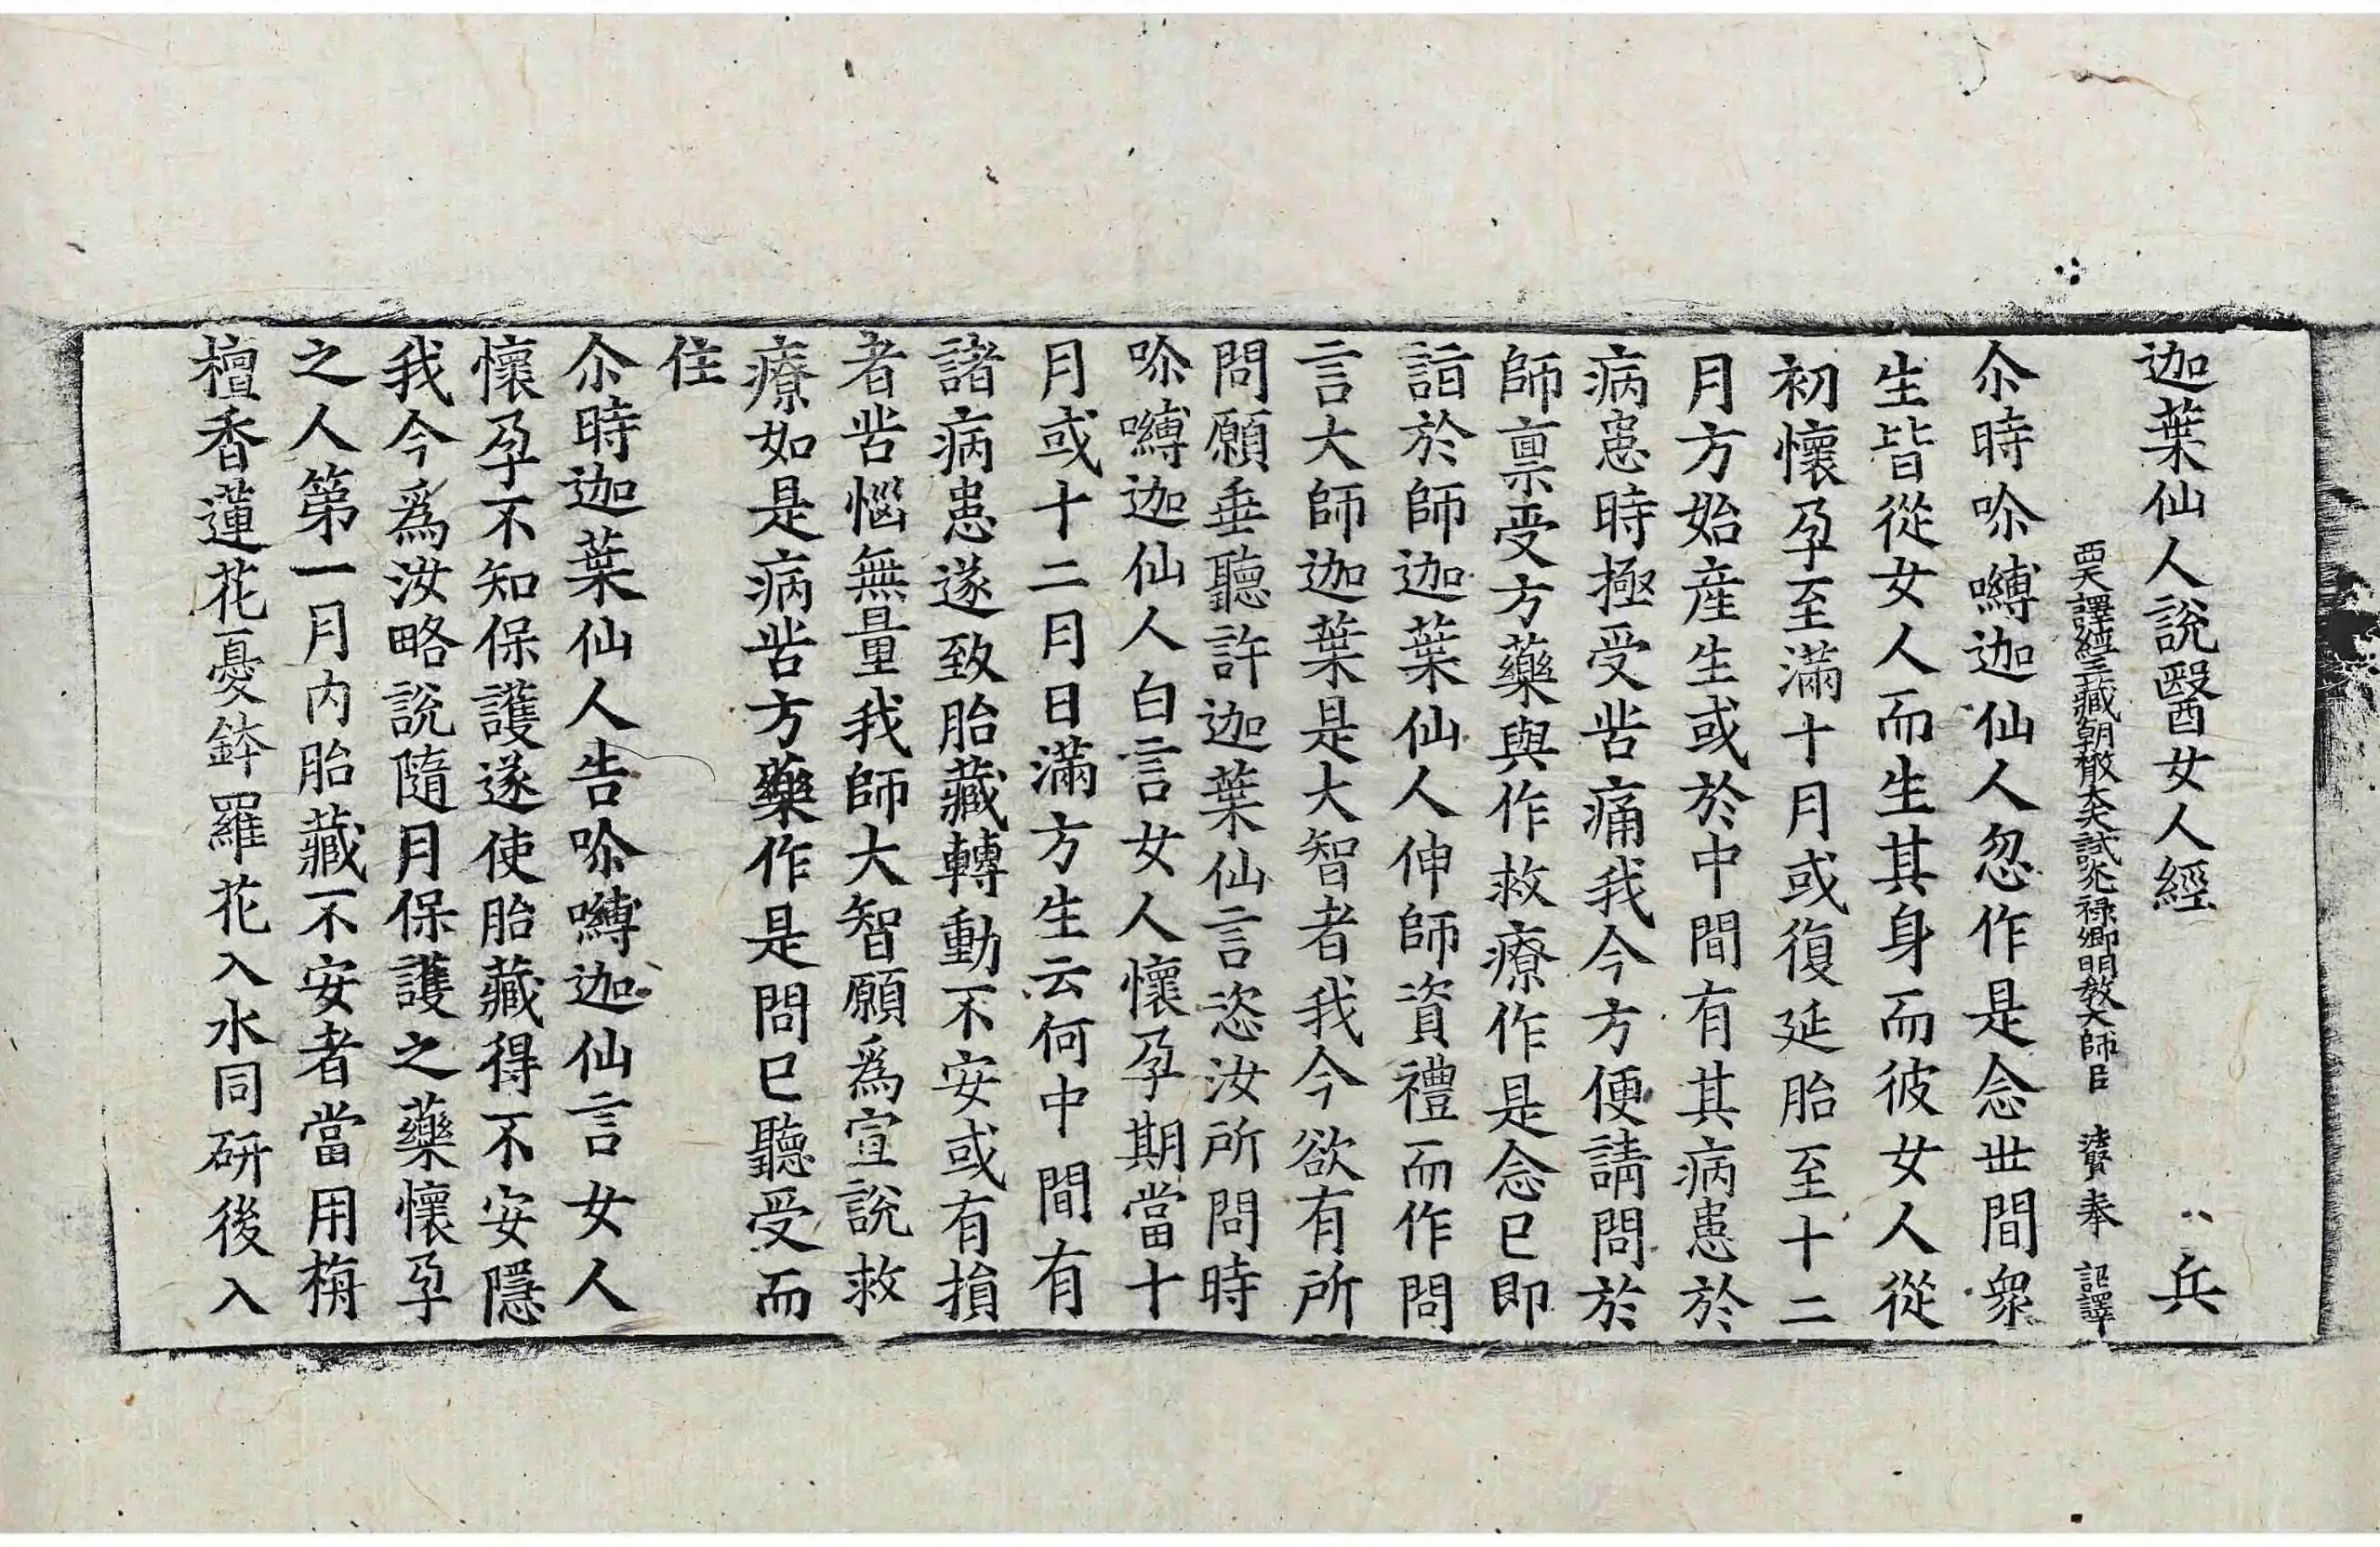 迦葉仙人說醫女人經 兵
西天譯經三藏朝散大夫試光祿卿明教大師臣 法賢奉 詔譯
尒時㖿嚩迦仙人忽作是念世間衆
生皆從女人而生其身而彼女人從
初懷孕至滿十月或復延胎至十二
月方始產生或於中間有其病患於
病患時極受苦痛我今方便請問於
師禀受方藥與作救療作是念已即
詣於師迦葉仙人伸師資禮而作問
言大師迦葉是大智者我今欲有所
問願垂聽許迦葉仙言恣汝所問時
㖿嚩迦仙人白言女人懷孕期當十
月或十二月日滿方生云何中間有
諸病患遂致胎藏轉動不安或有損
者苦惱無量我師大智願爲宣說救
療如是病苦方藥作是問已聽受而
住
尒時迦葉仙人告㖿嚩迦仙言女人
懷孕不知保護遂使胎藏得不安隱
我今爲汝略說隨月保護之藥懷孕
之人第一月內胎藏不安者當用栴
檀香蓮花憂鉢羅花入水同研後入